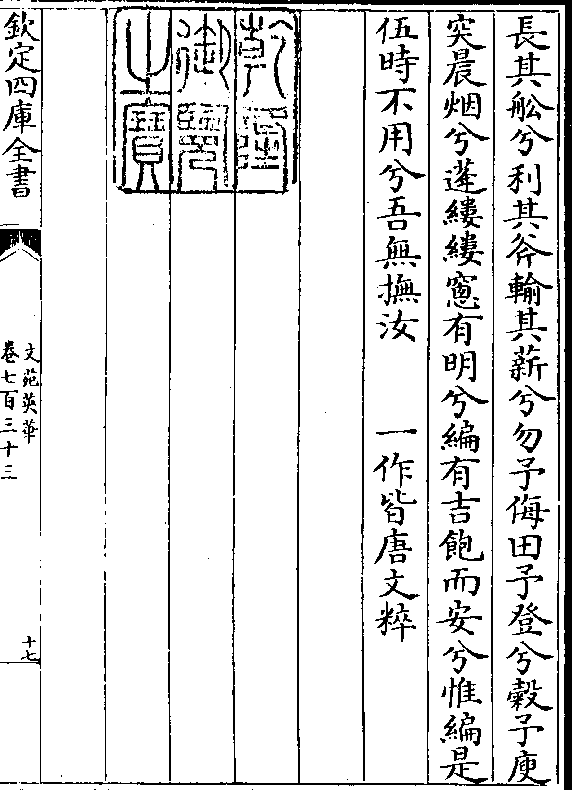 長其舩兮利其斧輸其薪兮勿予侮田予登兮穀予庾
突晨烟兮蓬縷縷窻有明兮編有吉飽而安兮惟編是
伍時不用兮吾無撫汝　一作皆唐文粹
乾隆御覽之寶
欽定四庫全書
文苑英華
卷七百三十三
十七